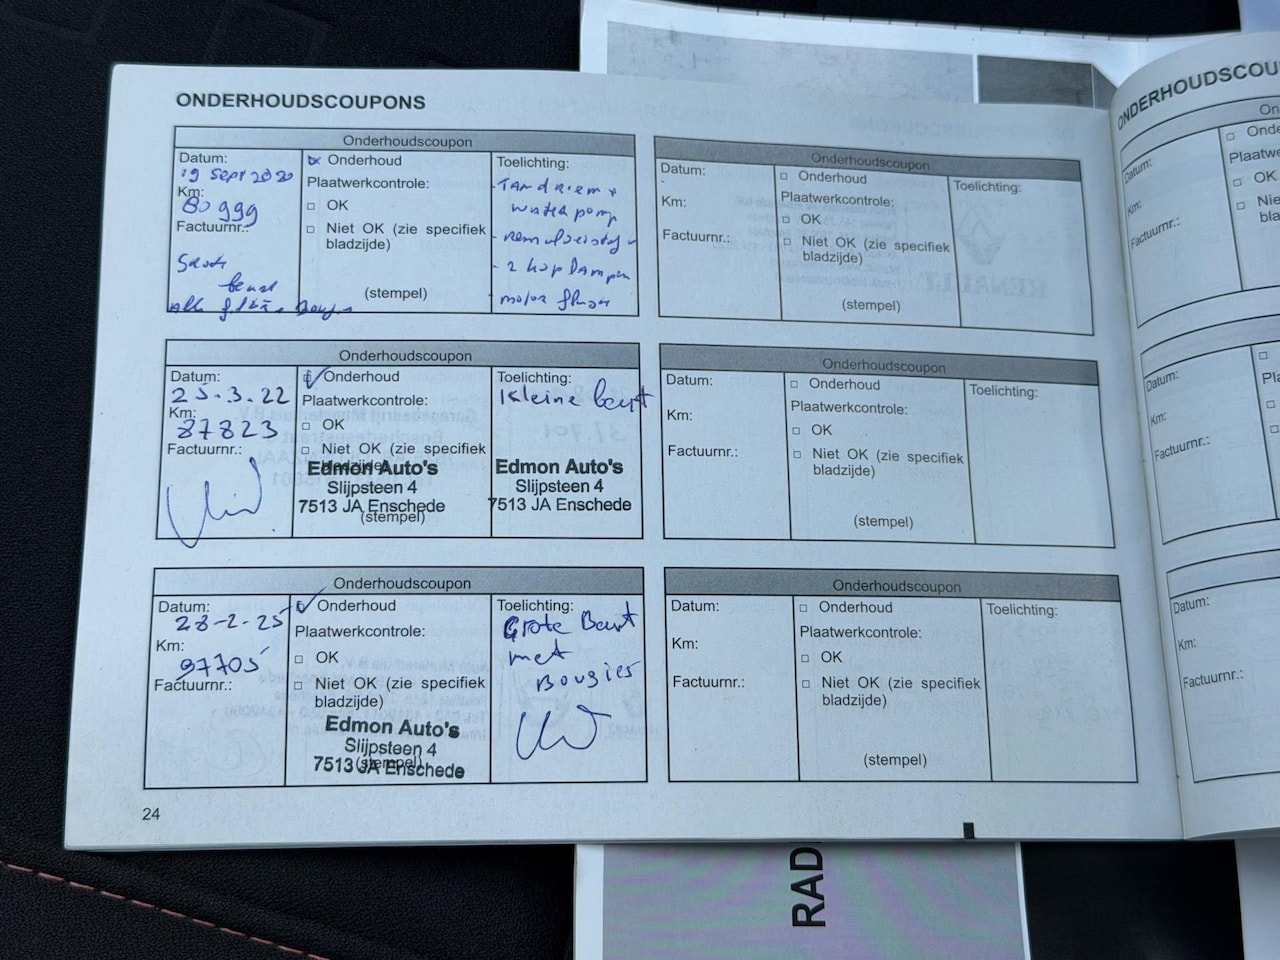 ONDERHOUDSCOUPONS
Onderhoudscoupon
Datum:
19 sept 2020
Km:
80999
Factuurnr.:
beurt
Onderhoud
Plaatwerkcontrole:
OK
Niet OK (zie specifiek
bladzijde)
(stempel)
Toelichting:
- Tandriem +
waterpomp
- 2 koplampen
- motor
Onderhoudscoupon
Datum:
25.3.22
Km:
87823
Factuurnr.:
Onderhoud
Plaatwerkcontrole:
OK
Niet OK (zie specifiek
bladzijde)
Edmon Auto's
Slijpsteen 4
7513 JA Enschede
(stempel)
Toelichting:
Kleine beurt
Edmon Auto's
Slijpsteen 4
7513 JA Enschede
Onderhoudscoupon
Datum:
28-2-25
Km:
97705
Factuurnr.:
Onderhoud
Plaatwerkcontrole:
OK
Niet OK (zie specifiek
bladzijde)
Edmon Auto's
Slijpsteen 4
(stempel)
7513 JA Enschede
Toelichting:
Grote Beurt
met
Bougies
24
Onderhoudscoupon
Datum:
Km:
Factuurnr.:
Onderhoud
Plaatwerkcontrole:
OK
Niet OK (zie specifiek
bladzijde)
(stempel)
Toelichting:
Onderhoudscoupon
Datum:
Km:
Factuurnr.:
Onderhoud
Plaatwerkcontrole:
OK
Niet OK (zie specifiek
bladzijde)
(stempel)
Toelichting:
Onderhoudscoupon
Datum:
Km:
Factuurnr.:
Onderhoud
Plaatwerkcontrole:
OK
Niet OK (zie specifiek
bladzijde)
(stempel)
Toelichting:
ONDERHOUDSCOU
On
Datum:
Km:
Factuurnr.:
Onde
Plaatwe
OK
Nie
bla
Datum:
Km:
Factuurnr.:
Datum:
Km:
Factuurnr.:
RAD